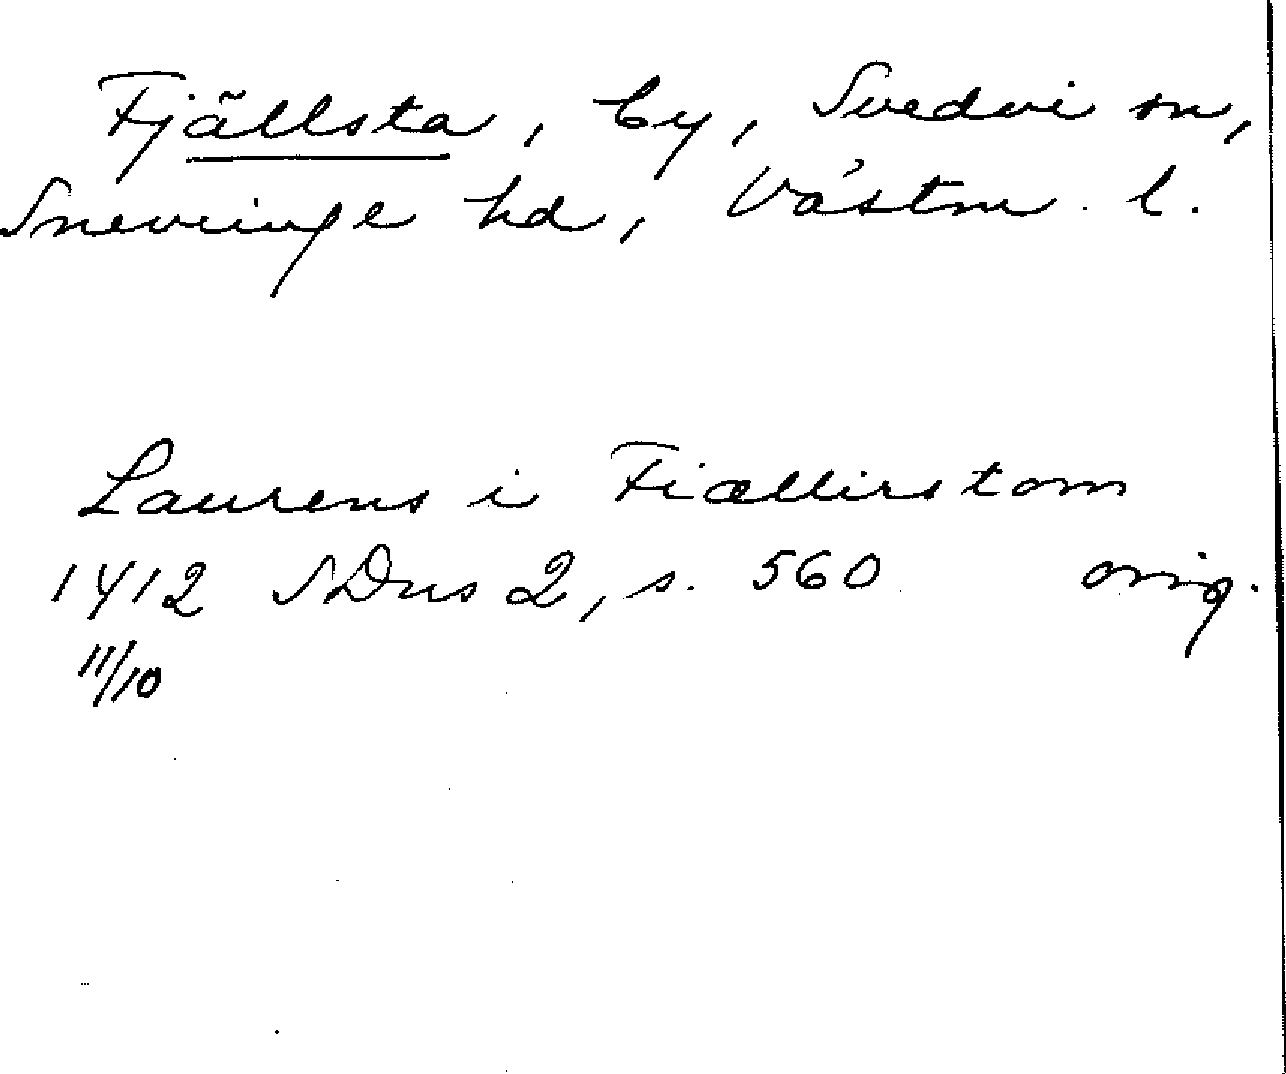 Fjällsta, by, Svedvi sn,
Snevringe hd, Västm. l.
Laurens i Fiællirstom
1412 SDns 2, s. 560 orig.
11/10